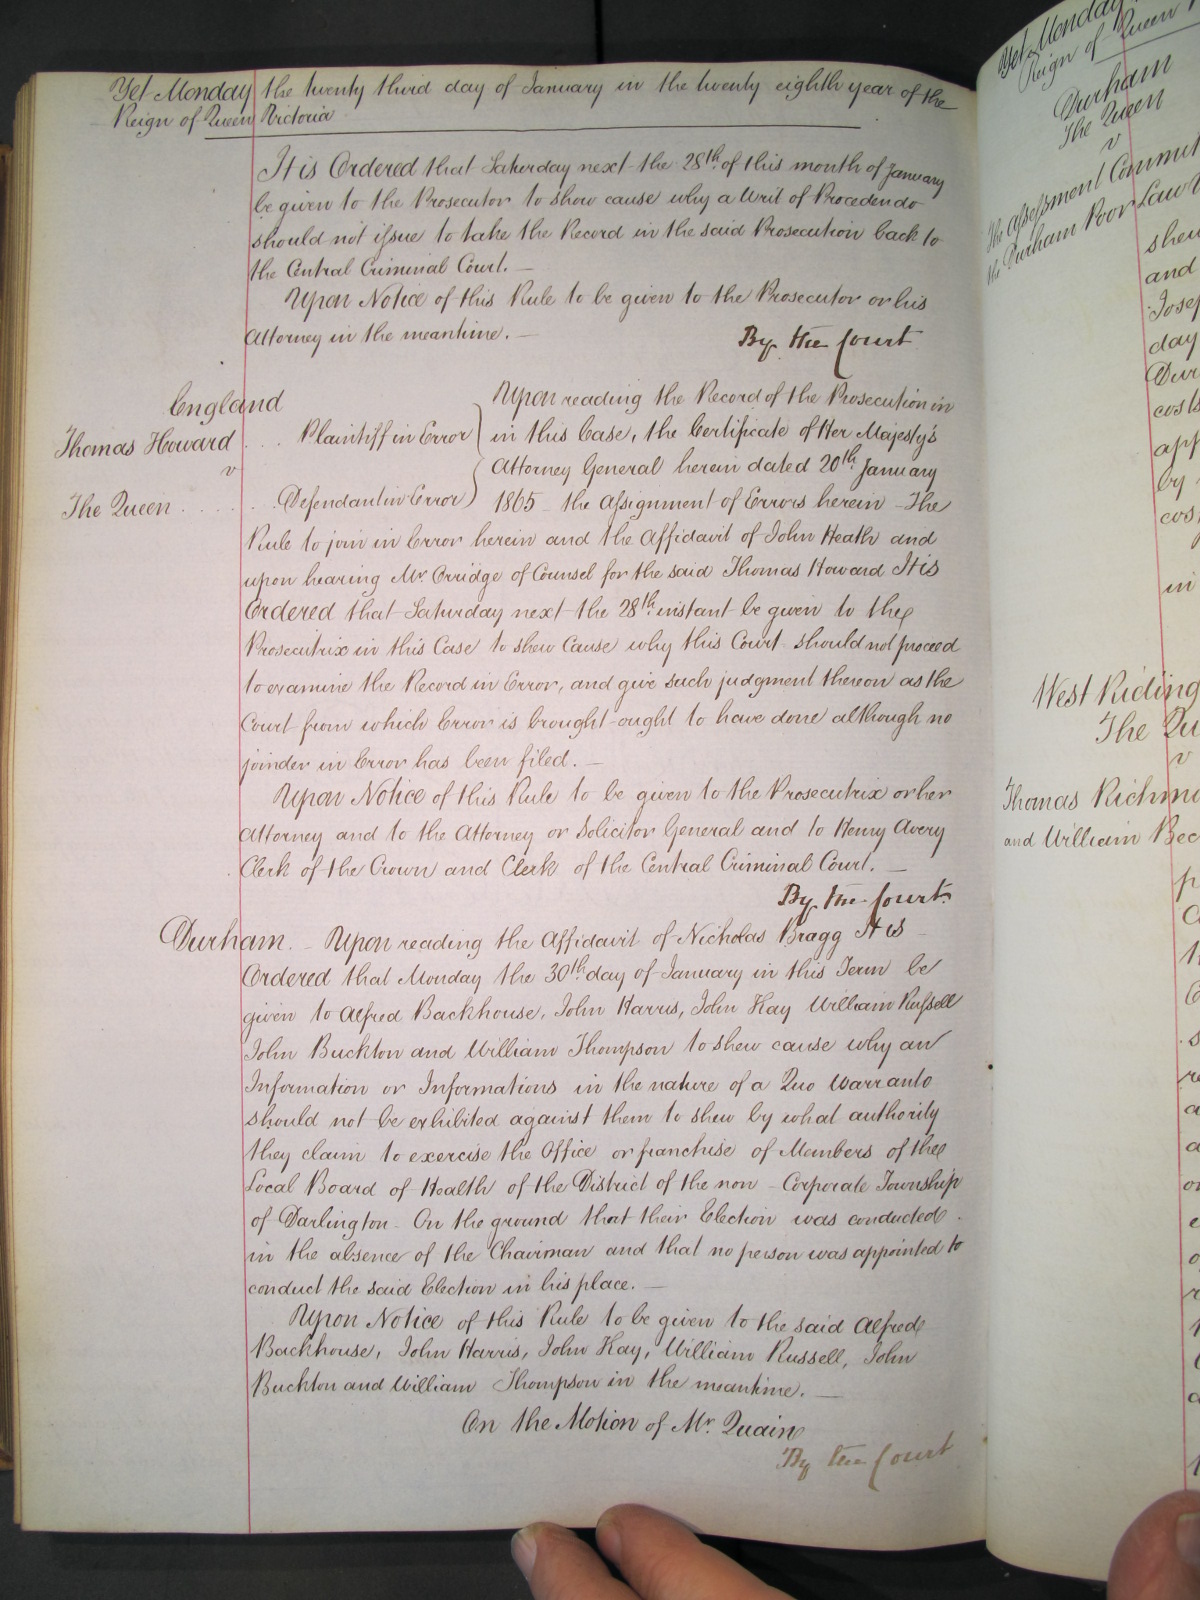 Yet Monday the twenty third day of January in the twenty eighth year of the
Reign of Queen Victoria
It is Ordered that Saturday next the 28th of this month of January
be given to the Prosecutor to show cause why a Writ of Procedendo
should not issue to take the Record in the said Prosecution back to
the Central Criminal Court. —
Upon Notice of this Rule to be given to the Prosecutor or his
Attorney in the meantime. —
By the Court
England
Thomas Howard . . Plaintiff in Error
v
The Queen . . . . . . Defendant in Error
Upon reading the Record of the Prosecution in
in this Case, the Certificate of Her Majesty's
Attorney General herein dated 20th January
1865 the Assignment of Errors herein - The
Rule to join in Error herein and the Affidavit of John Heath and
upon hearing Mr. Orridge of Counsel for the said Thomas Howard It is
Ordered that Saturday next the 28th instant be given to the
Prosecutrix in this Case to shew Cause why this Court should not proceed
to examine the Record in Error, and give such judgment thereon as the
Court from which Error is brought ought to have done although no
joinder in Error has been filed. —
Upon Notice of this Rule to be given to the Prosecutrix or her
Attorney and to the Attorney or Solicitor General and to Henry Avery
Clerk of the Crown and Clerk of the Central Criminal Court. —
By the Court
Durham. - Upon reading the Affidavit of Nicholas Bragg It is
Ordered that Monday the 30th day of January in this Term be
given to Alfred Backhouse, John Harris, John Kay William Russell
John Buckton and William Thompson to shew cause why an
Information or Informations in the nature of a Quo Warranto
should not be exhibited against them to shew by what authority
they claim to exercise the Office or franchise of Members of the
Local Board of Health of the District of the non - Corporate Township
of Darlington - On the ground that their Election was conducted
in the absence of the Chairman and that no person was appointed to
conduct the said Election in his place. —
Upon Notice of this Rule to be given to the said Alfred
Backhouse, John Harris, John Kay, William Russell, John
Buckton and William Thompson in the meantime. —
On the Motion of Mr. Quain
By the Court
Yet Monday
Reign of Queen
Durham
The Queen
v
The Assessment
the Durham Poor Law
shew
and
day
costs
by
in
West Riding
The
v
Thomas
and William